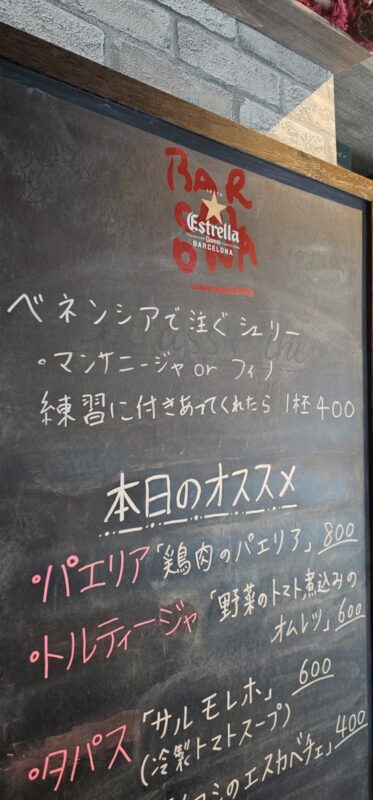 BAR
CEL
ONA
Estrella
BARCELONA
ベネンシアで注ぐシェリー
・マンサニージャ or フィノ
練習に付きあってくれたら 1杯 400
本日のオススメ
・パエリア「鶏肉のパエリア」 800
・トルティージャ「野菜のトマト煮込みの
オムレツ」 600
・タパス「サルモレホ」 600
(冷製トマトスープ)
のエスカベチェ」 400